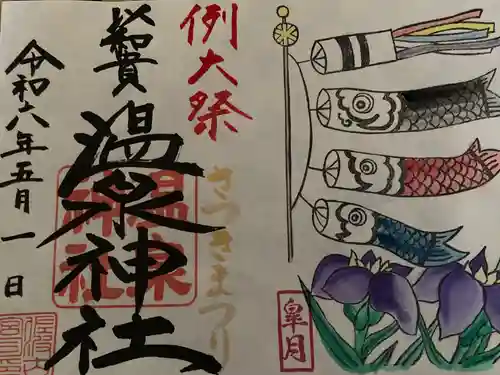 皐月
例大祭
さつきまつり
温泉神社
温泉
神社
令和六年五月一日